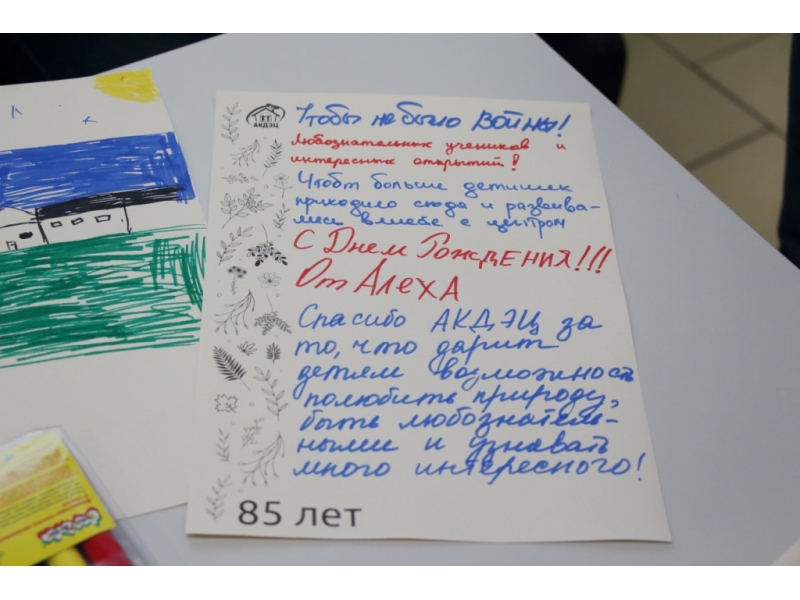 АКДЭЦ
Чтобы не было Войны!
Любознательных учеников и
интересных открытий!
Чтобы больше детишек
приходило сюда и развива-
лись вместе с центром
С Днем Рождения!!!
От Алеха
Спасибо АКДЭЦ за
то, что дарит
детям возможность
полюбить природу,
быть любознатель-
ными и узнавать
много интересного!
85 лет